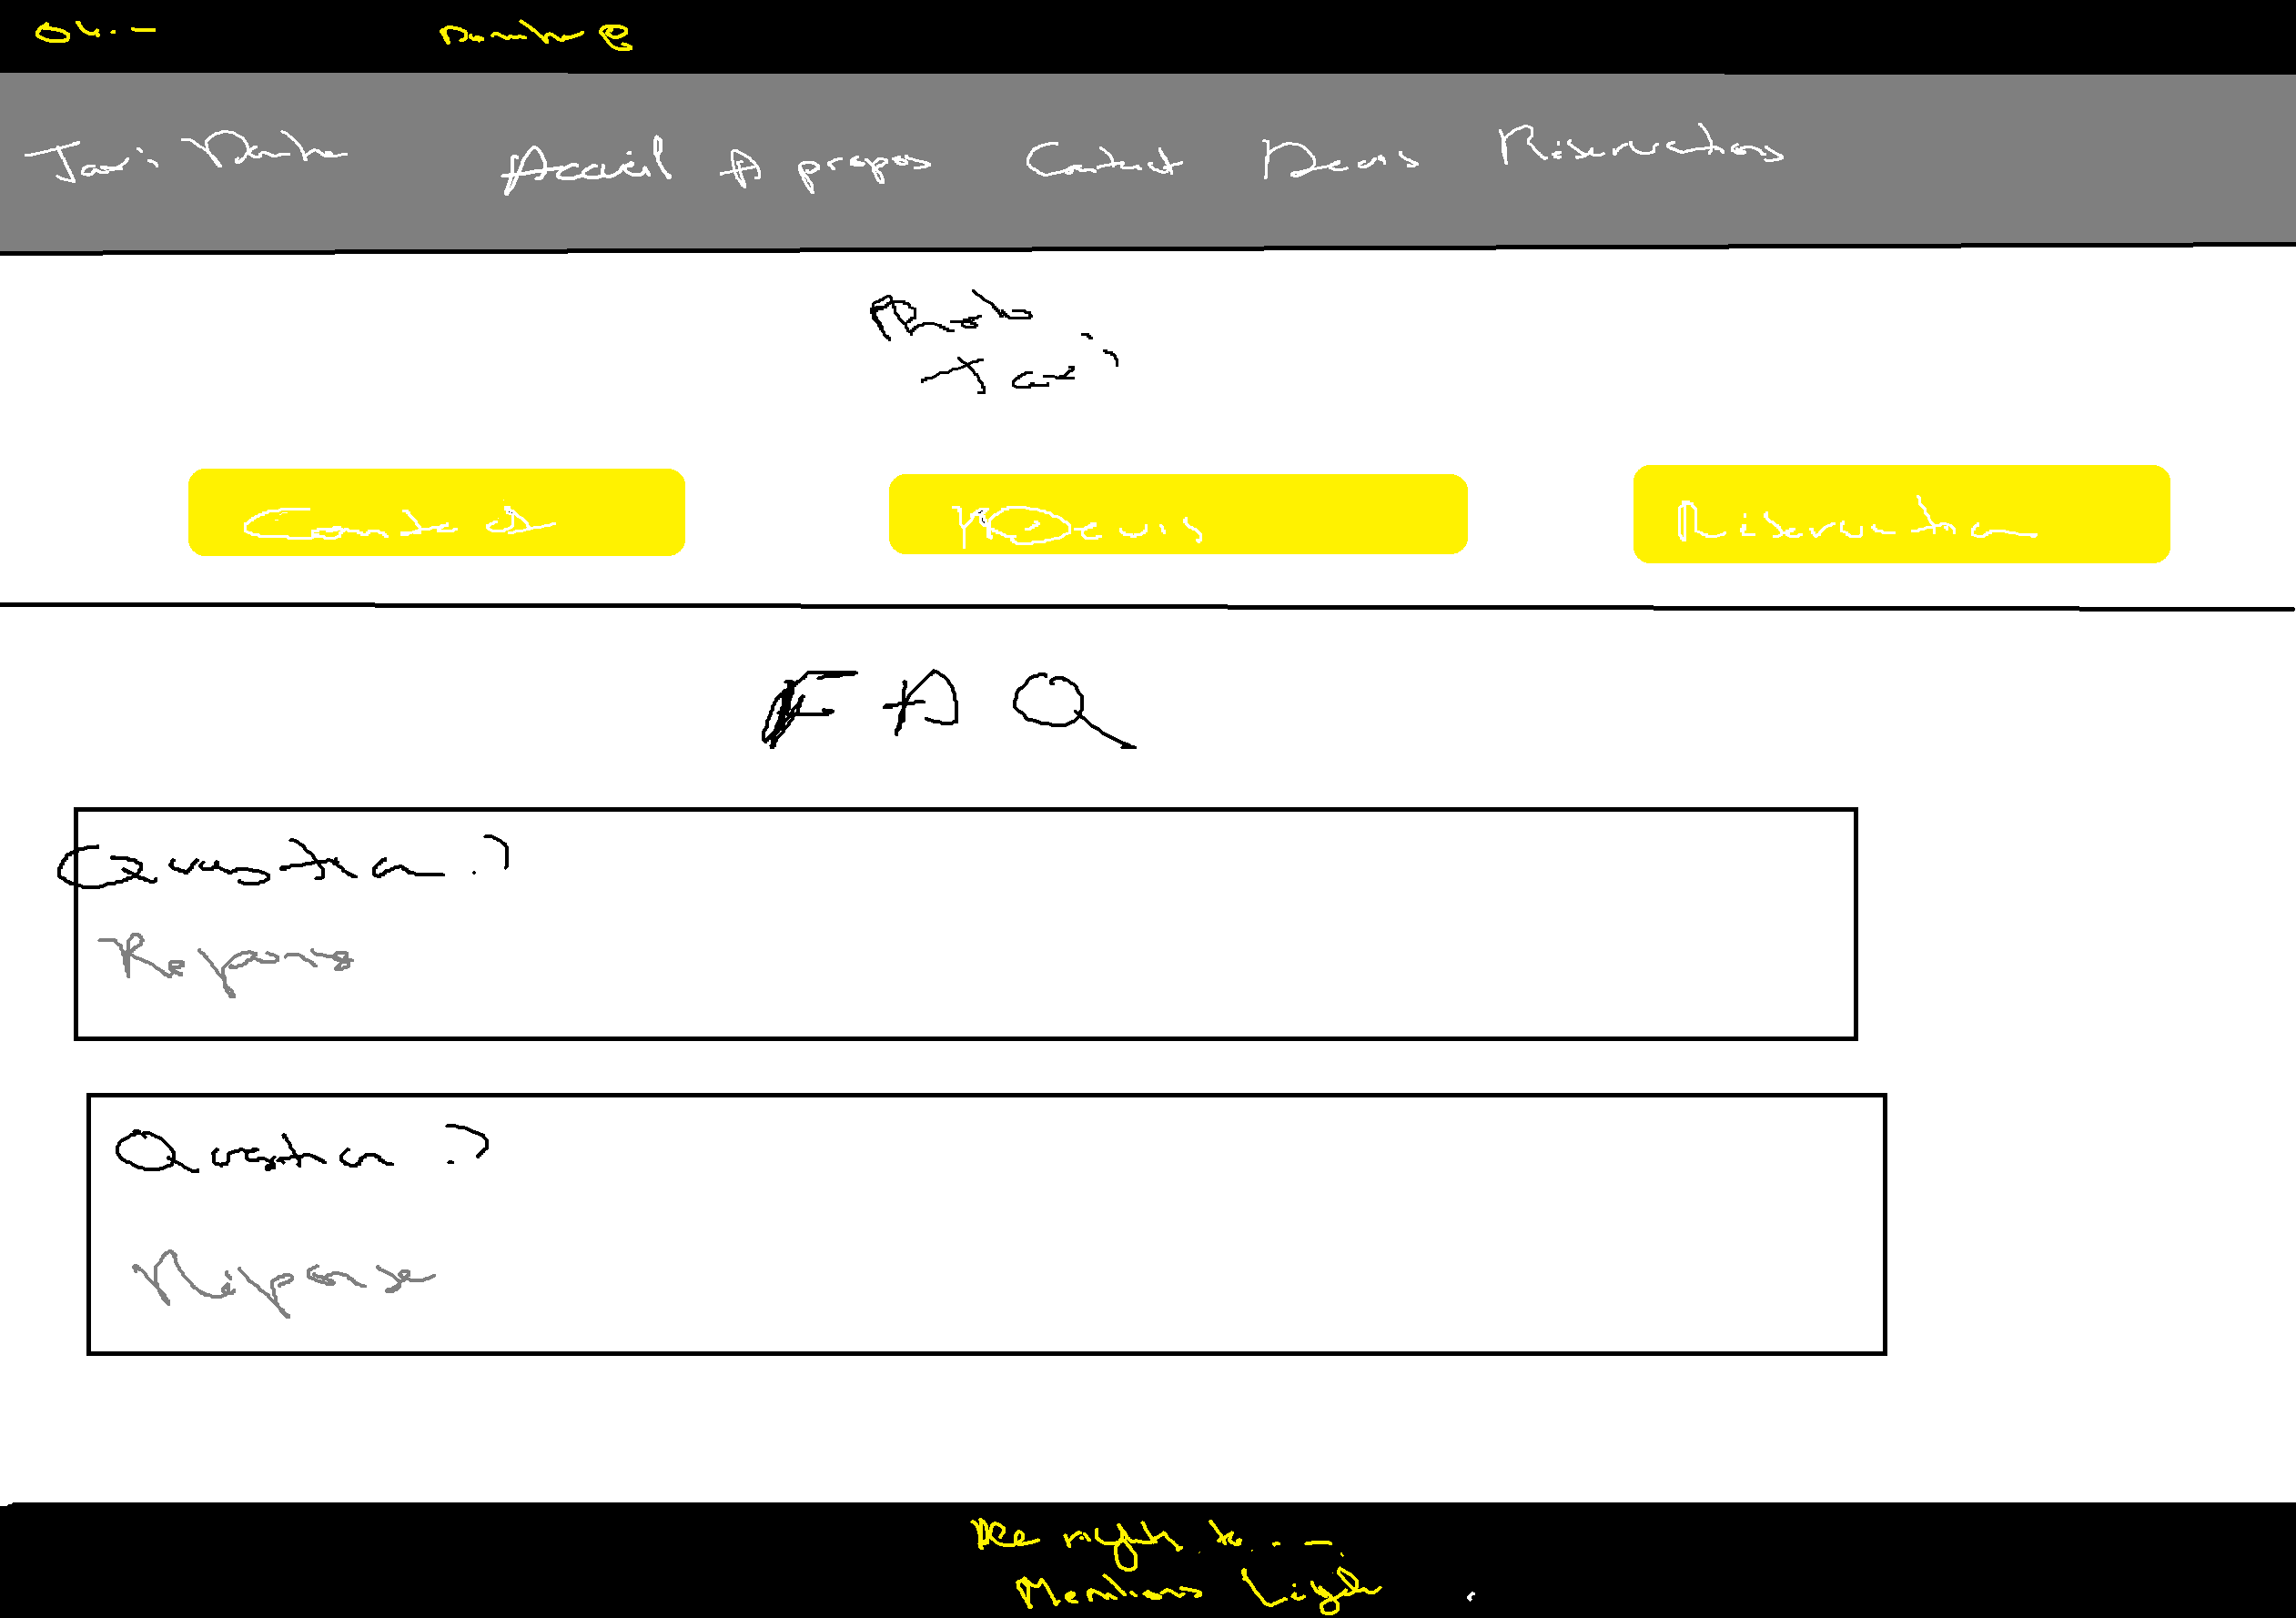 04..-
Accueil A propos Contact Devis Réservations
Photo
Taxi
Contact Devis Réservation
FAQ
Question ?
Réponse
Question ?
Réponse
All rights to...
Mentions Légales